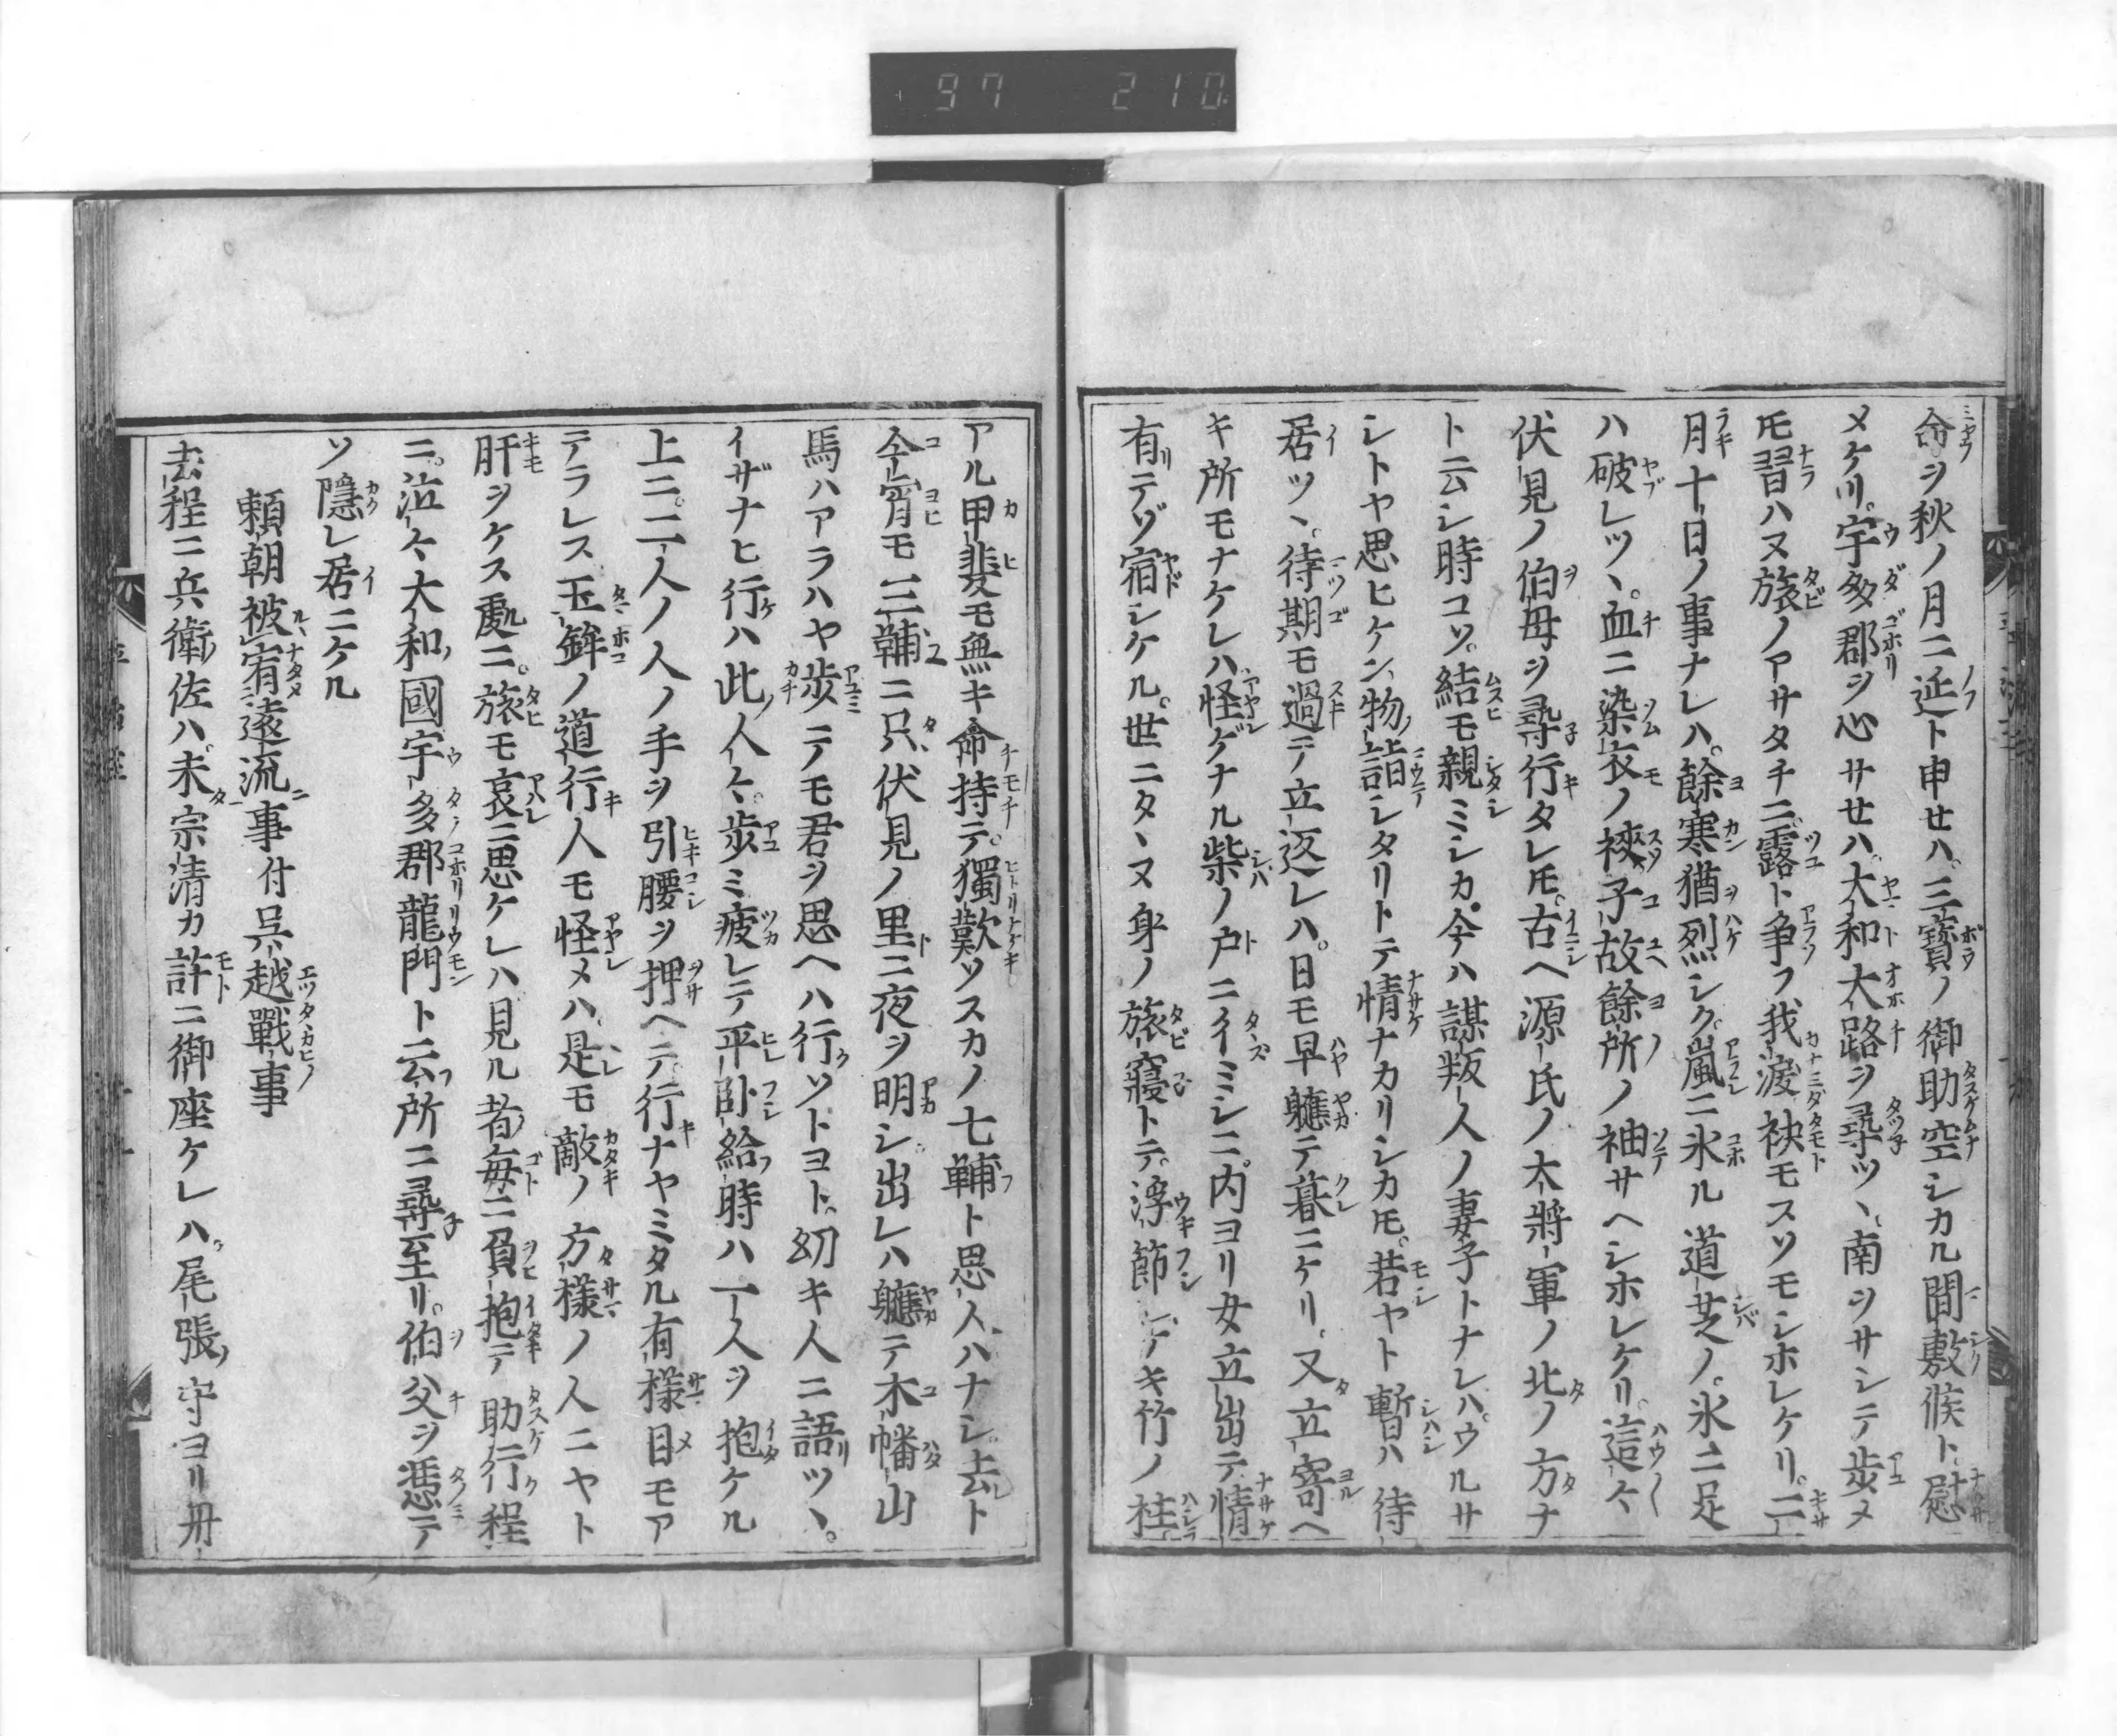 97 210
命ヲ秋ノ月ニ延ト申セハ。三寳ノ御助空シカル間敷候ト。慰
メケリ。宇多郡ヲ心サセハ。大和大路ヲ尋ツヽ。南ヲサシテ歩メ
𪜈習ハヌ旅ノアサタチニ。露ト争フ我涙袂モスソモシホレケリ。二
月十日ノ事ナレハ。餘寒猶烈シク。嵐ニ氷ル道芝ノ。氷ニ足
ハ破レツヽ。血ニ染衣ノ裾子故餘所ノ袖サヘシホレケリ。這々
伏見ノ伯母ヲ尋行タレ𪜈。古ヘ源氏ノ大將軍ノ北ノ方ナ
ト云シ時コソ。結モ親ミシカ。今ハ謀叛人ノ妻子トナレハ。ウルサ
シトヤ思ヒケン。物詣シタリトテ情ナカリシカ𪜈。若ヤト暫ハ待
居ツヽ。待期モ過テ立返レハ。日モ早軈テ暮ニケリ。又立寄ヘ
キ所モナケレハ。怪ゲナル柴ノ戸ニイミシニ。内ヨリ女立出テ情
有テゾ宿シケル。世ニタヽヌ身ノ旅寢トテ。浮節シゲキ竹ノ柱
アル甲斐モ無キ命持テ。獨歎ソスカノ七鞴ト思人ハナシ。去ト
今宵モ三鞴ニ只伏見ノ里ニ夜ヲ明シ。出レハ軈テ木幡山
馬ハアラハヤ歩ニテモ君ヲ思ヘハ行ソトヨト。幼キ人ニ語ツヽ。
イザナヒ行ハ此人々。歩ミ疲レテ平臥給時ハ一人ヲ抱ケル
上ニ。二人ノ人ノ手ヲ引腰ヲ押ヘテ。行ナヤミタル有様目モア
テラレス玉鉾ノ道行人モ怪メハ。是モ敵ノ方様ノ人ニヤト
肝ヲケス處ニ。旅モ哀ニ思ケレハ見ル者毎ニ負抱テ助行程
ニ。泣々大和國宇多郡龍門ト云所ニ尋至リ。伯父ヲ憑テ
ソ隱レ居ニケル
頼朝被宥遠流事付呉越戰事
去程ニ兵衛佐ハ。未宗清カ許ニ御座ケレハ。尾張守ヨリ丹